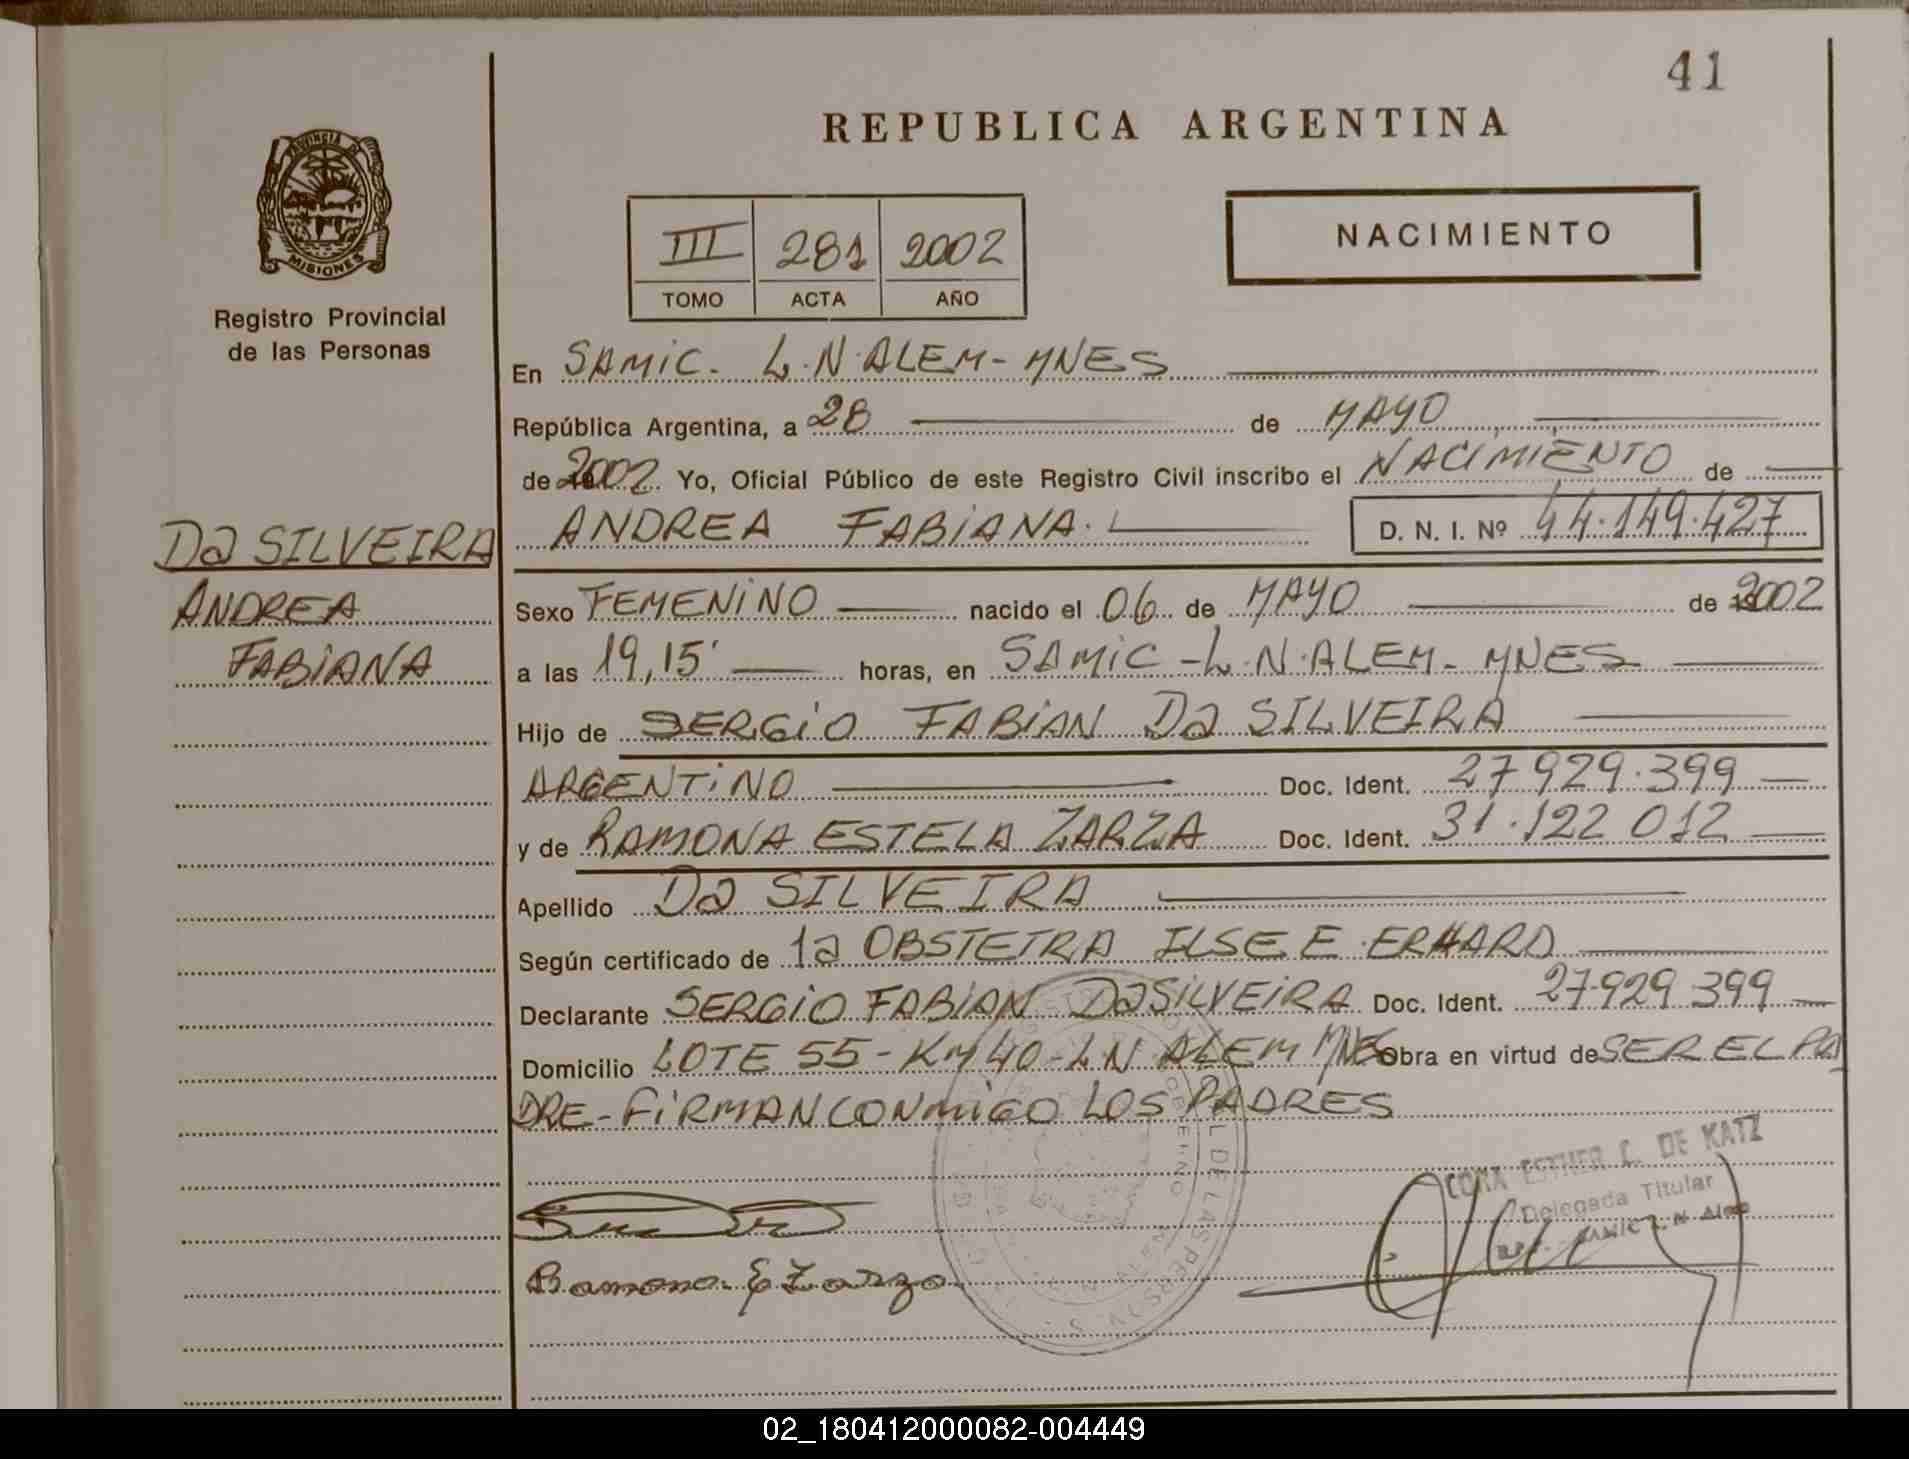 41
REPUBLICA ARGENTINA
PROVINCIA DE
MISIONES
Registro Provincial
de las Personas
III 281 2002
TOMO ACTA AÑO
NACIMIENTO
En SAMIC. L.N.ALEM-MNES
República Argentina, a 28 de MAYO
de 2002 Yo, Oficial Público de este Registro Civil inscribo el NACIMIENTO de
ANDREA FABIANA. D. N. I. Nº 44.149.427
Da SILVEIRA
ANDREA
FABIANA
Sexo FEMENINO nacido el 06 de MAYO de 2002
a las 19,15' horas, en SAMIC-L.N.ALEM-MNES
Hijo de SERGIO FABIAN Da SILVEIRA
ARGENTINO Doc. Ident. 27929.399
y de RAMONA ESTELA ZARZA Doc. Ident. 31.122 012
Apellido Da SILVEIRA
Según certificado de 1a OBSTETRA ILSE E. ERHARD
Declarante SERGIO FABIAN DaSILVEIRA Doc. Ident. 27.929 399
Domicilio LOTE 55-KM40-LN ALEM MNES Obra en virtud de SER EL PA
DRE-FIRMAN CONMIGO LOS PADRES
CORA ESTHER C. DE KATZ
Delegada Titular
SAMIC L.N Alem
Ramona E Zarza
02_180412000082-004449